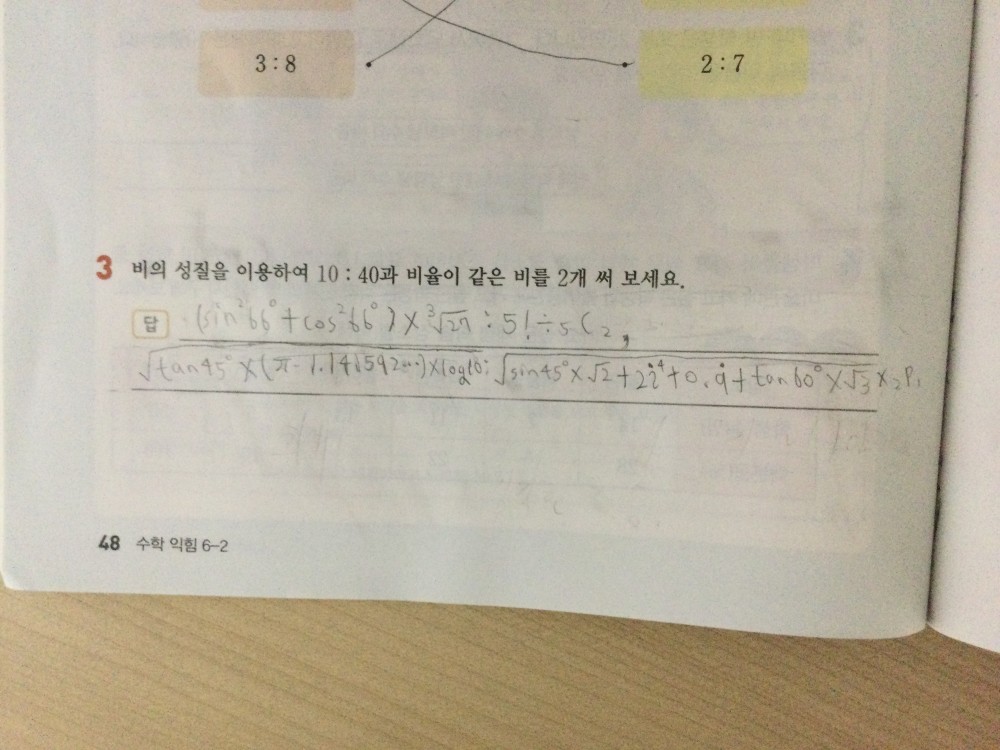 3 : 8
2 : 7
3 비의 성질을 이용하여 10 : 40과 비율이 같은 비를 2개 써 보세요.
답 (sin²66°+cos²66°)×³√27 : 5!÷₅C₂,
√tan45°×(π-1.141592…)×log10 : √sin45°×√2+2i⁴+0.9̇+tan60°×√3×₂P₁
48 수학 익힘 6–2